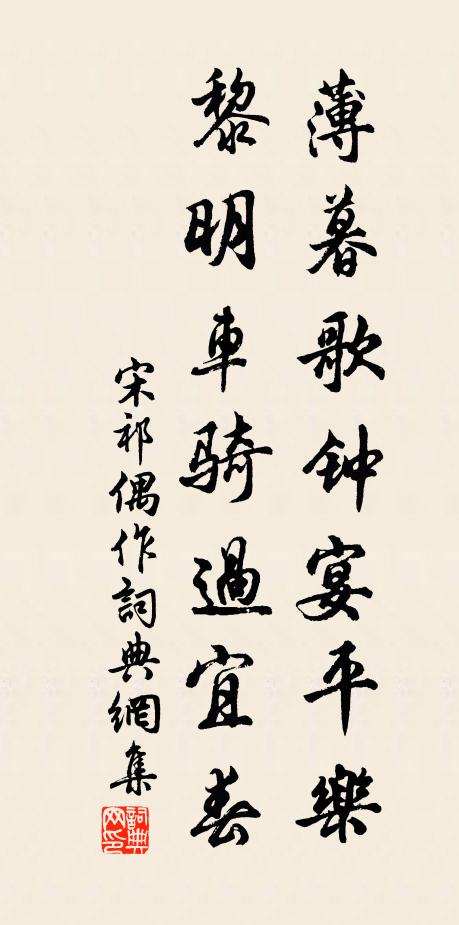 薄暮歌钟宴平樂
黎明車騎過宜春
宋祁偶作詞典網集
詞典网印